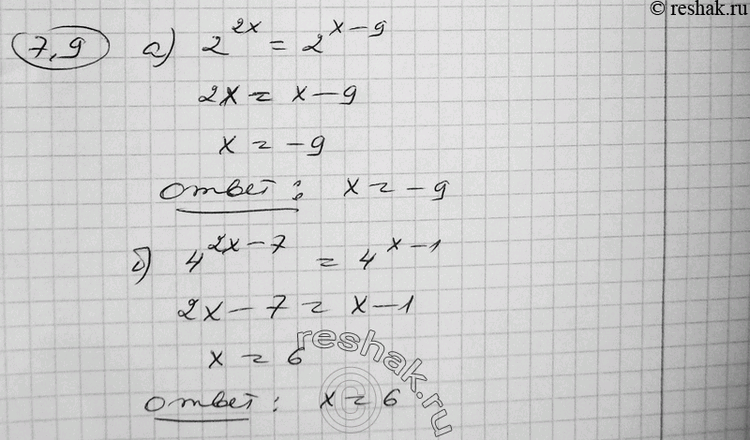 © reshak.ru
7,9 а) 2^{2x} = 2^{x-9}
2x = x-9
x = -9
Ответ: x = -9
б) 4^{2x-7} = 4^{x-1}
2x-7 = x-1
x = 6
Ответ: x = 6
reshak.ru
©